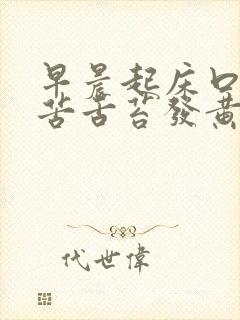 早晨起床口
苦舌苔發黃
代世偉